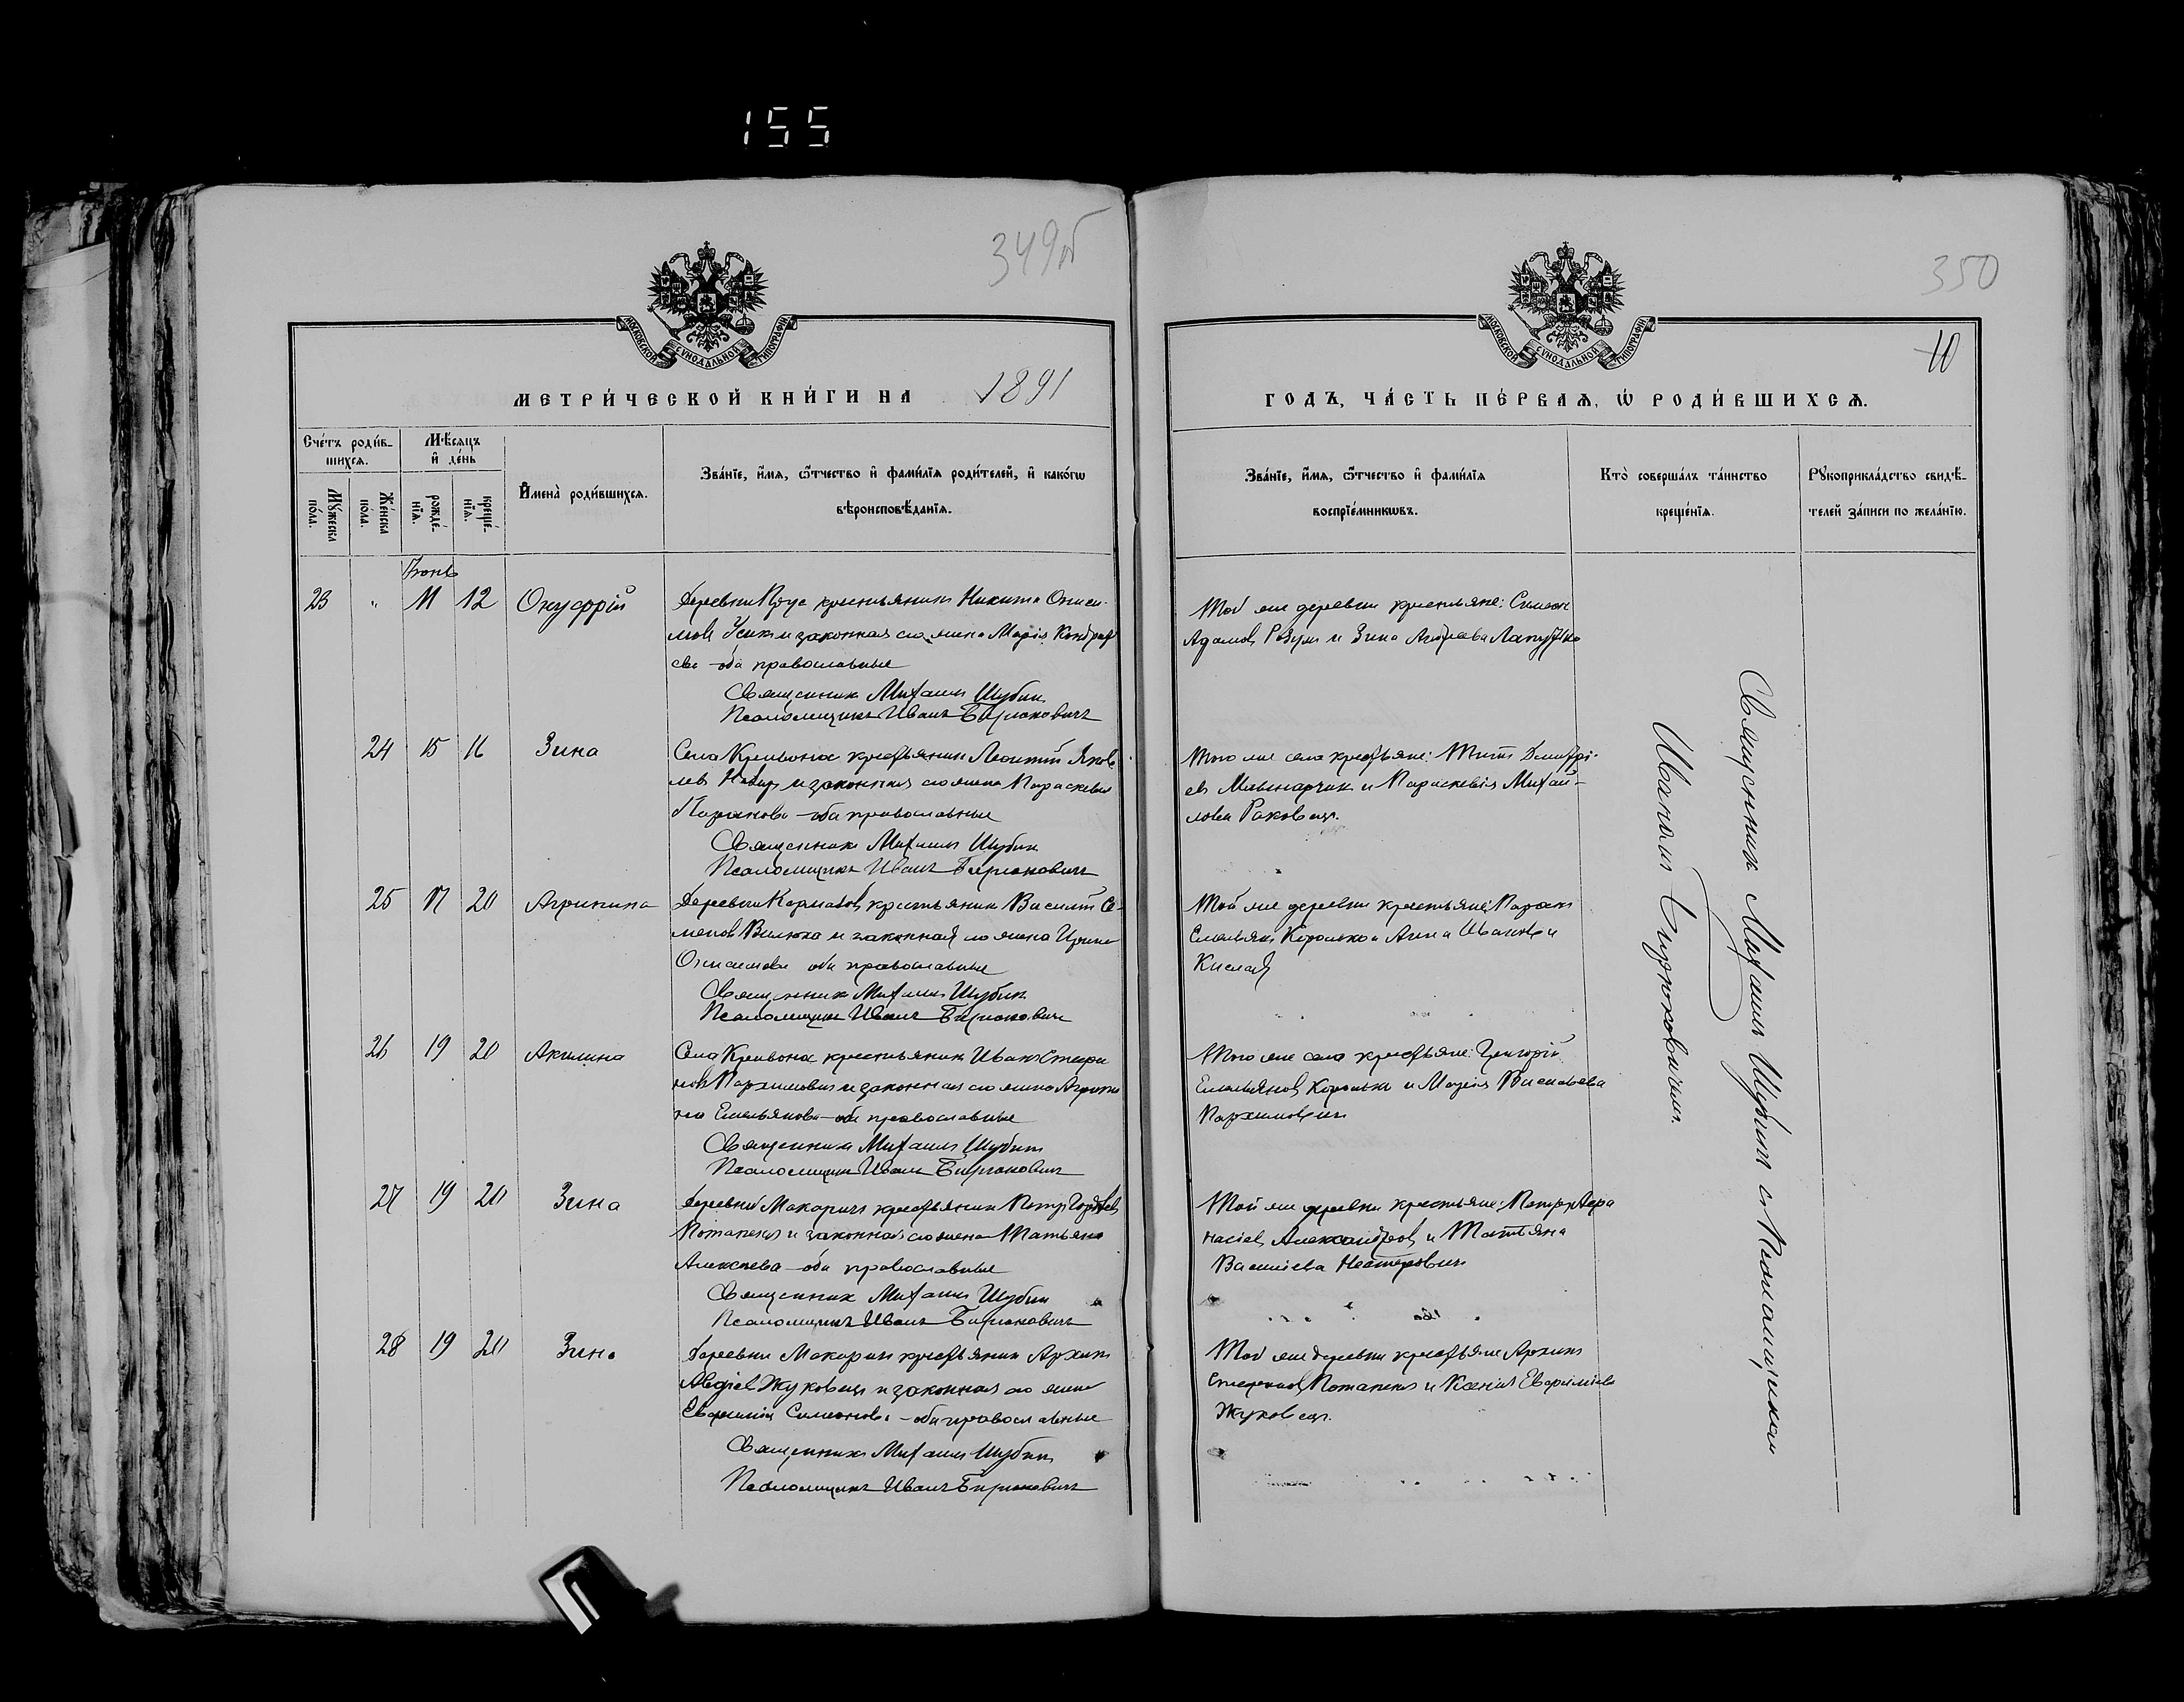 155
349об
350
10
МОСКОВСКОЙ СУНОДАЛЬНОЙ ТИПОГРАФІИ
МОСКОВСКОЙ СУНОДАЛЬНОЙ ТИПОГРАФІИ
МЕТРИ́ЧЕСКОЙ КНИ́ГИ НА 1891
ГОДЪ, ЧА́СТЬ ПЕ́РВАѦ, Ѡ҆ РОДИ́ВШИХСѦ.
Сче́тъ роди́в-
шихсѧ.
Мѣ́сѧцъ
и҆ де́нь
Мꙋ́жеска по́ла.
Же́нска по́ла.
рожде́-нїѧ.
креще́-нїѧ.
И҆мена̀ роди́вшихсѧ.
Зва́нїе, и҆́мѧ, ѻ҆́тчество и҆ фами́лїѧ роди́телей, и҆ како́гѡ
вѣроисповѣ́данїѧ.
Зва́нїе, и҆́мѧ, ѻ҆́тчество и҆ фами́лїѧ
воспрїе́мникѡвъ.
Кто̀ соверша́лъ та́инство
креще́нїѧ.
Рꙋкоприкла́дство свидѣ́-
телей за́писи по жела́нїю.
Іюнь
23 " 11 12 Онуфрій
Деревни крестьянинъ Никита Ониси-
мовъ Усикъ и законная его жена Марія Кондрать
ева оба православные
Священникъ Михаилъ Шубинъ
Псаломщикъ Иванъ Бирюковичъ
Той же деревни крестьяне: Симеонъ
Адамовъ Розумъ и Зина Андреева
24 15 16 Зина
Села Кривоноса крестьянинъ Леонтій Яков
левъ и законная его жена Параскева
оба православные
Священникъ Михаилъ Шубинъ
Псаломщикъ Иванъ Бирюковичъ
Того же села крестьяне: Титъ Димитрі-
евъ Мельничукъ и Параскевія Михай-
лова Раковецъ.
25 17 20 Агрипина
Деревни крестьянинъ Василій Се-
меновъ и законная его жена Ирина
Онисимова оба православные
Священникъ Михаилъ Шубинъ
Псаломщикъ Иванъ Бирюковичъ
Той же деревни крестьяне:
Королько и Анна Иванова
Кислая
26 19 20 Акилина
Села Кривоноса крестьянинъ Иванъ Стефа
новъ Пархимовичъ и законная его жена Агрипи
на Емельянова оба православные
Священникъ Михаилъ Шубинъ
Псаломщикъ Иванъ Бирюковичъ
Того же села крестьяне: Григорій
Емельяновъ Королько и Марія Васильева
Пархимовичъ
27 19 20 Зина
Деревни Макаричъ крестьянинъ Петръ Гордѣевъ
Потапенко и законная его жена Татьяна
Алексеева оба православные
Священникъ Михаилъ Шубинъ
Псаломщикъ Иванъ Бирюковичъ
Той же деревни крестьяне: Петръ Афа
насіевъ Александровъ и Татіяна
Василіева Нестеровичъ
28 19 20 Зина
Деревни Макаричъ крестьянинъ Архипъ
Авдіевъ Жуковецъ и законная его жена
Евфимія Симеонова оба православные
Священникъ Михаилъ Шубинъ
Псаломщикъ Иванъ Бирюковичъ
Той же деревни крестьяне Архипъ
Стефановъ Потапенко и Ксенія Евфиміева
Жуковецъ.
Священникъ Михаилъ Шубинъ съ Псаломщикомъ
Иваномъ Бирюковичемъ.